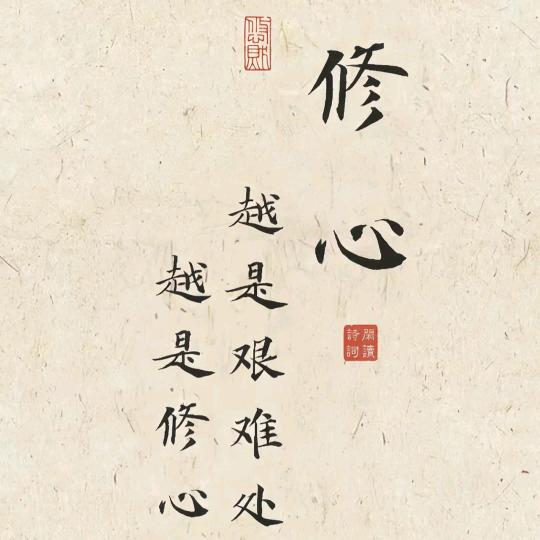 修心
閑讀
詩詞
越是艰难处
越是修心